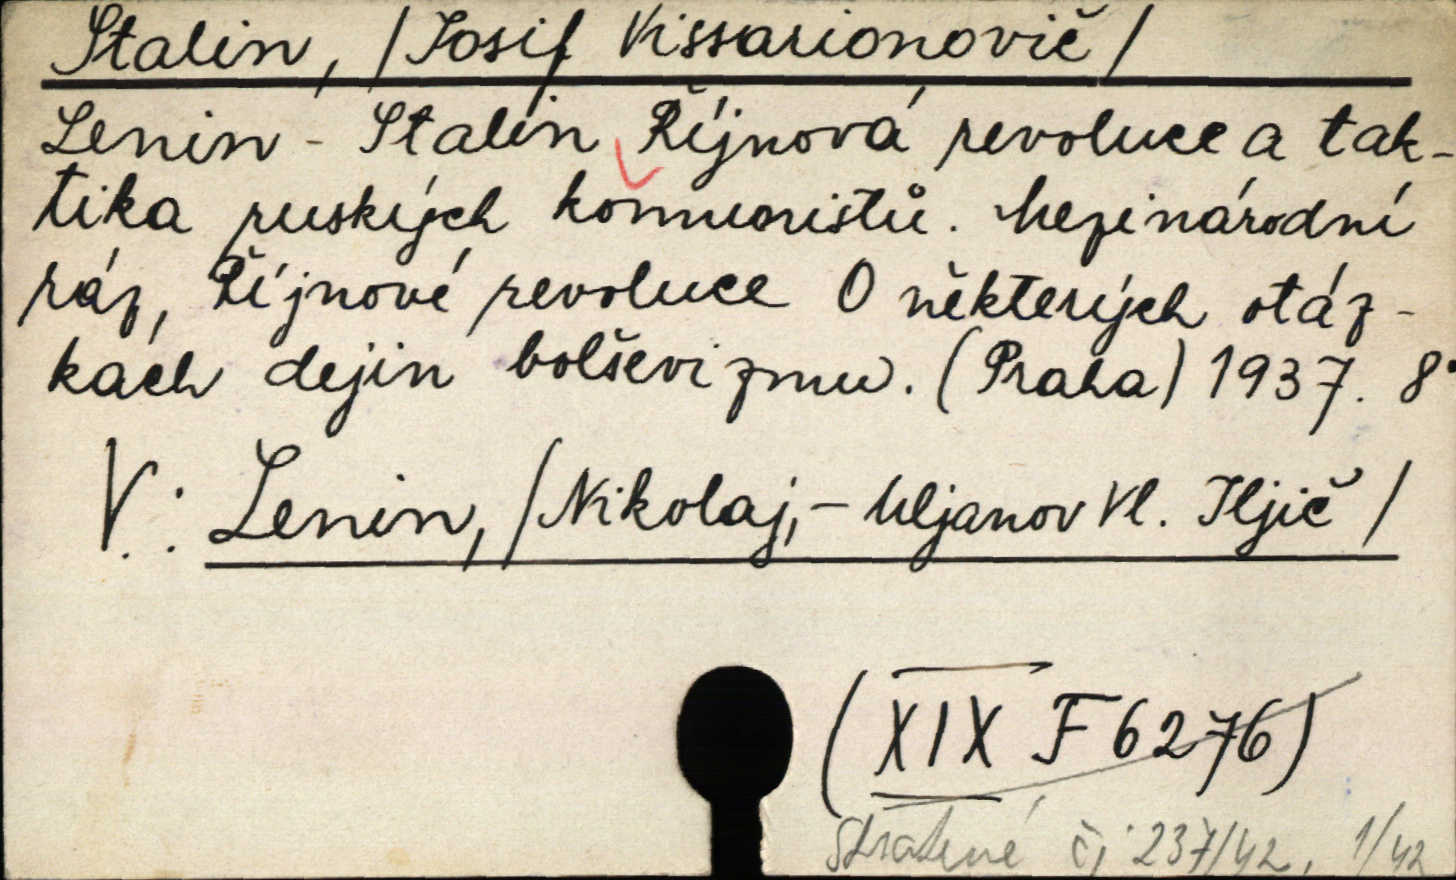 Stalin, /Josif Vissarionovič/
Lenin - Stalin Říjnová revoluce a tak-
tika ruských komunistů. Mezinárodní
ráz, Říjnové revoluce O některých otáz-
kách dejin bolševizmu. (Praha) 1937. 8°
V: Lenin, /Nikolaj,- Uljanov Vl. Iljič/
(XIX F 6276)
Stratené čj 237/42, 1/42